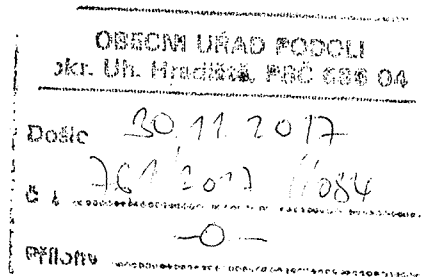 OBECNÍ ÚŘAD PODOLÍ
okr. Uh. Hradiště, PSČ 686 04
Došlo 30.11.2017
č.j. 761/2017 /084
Přílohy —0—